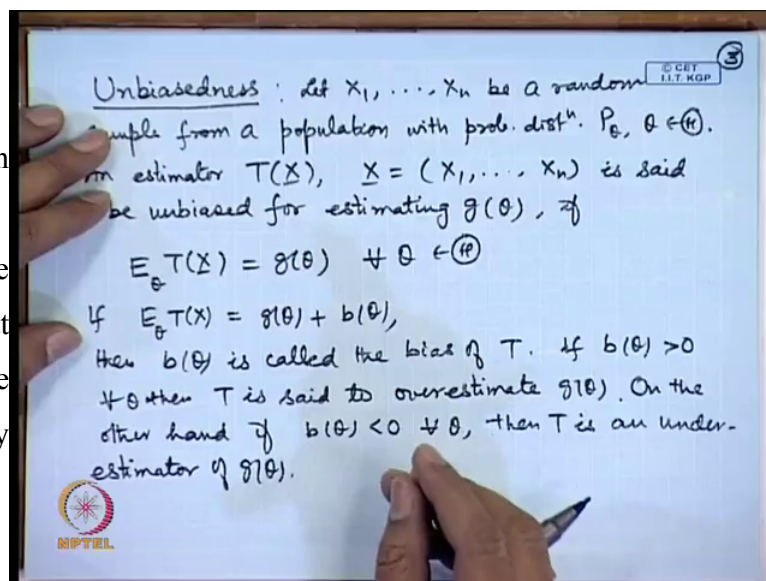 ③
© CET
I.I.T. KGP
Unbiasedness : Let X₁, ..., Xₙ be a random
sample from a population with prob. distⁿ. P_θ, θ ∈ Ⓗ.
estimator T(X), X = (X₁, ..., Xₙ) is said
be unbiased for estimating g(θ), if
E_θ T(X) = g(θ) ∀ θ ∈ Ⓗ
If E_θ T(X) = g(θ) + b(θ),
then b(θ) is called the bias of T. If b(θ) > 0
∀ θ then T is said to overestimate g(θ). On the
other hand if b(θ) < 0 ∀ θ, then T is an under-
estimator of g(θ).
NPTEL